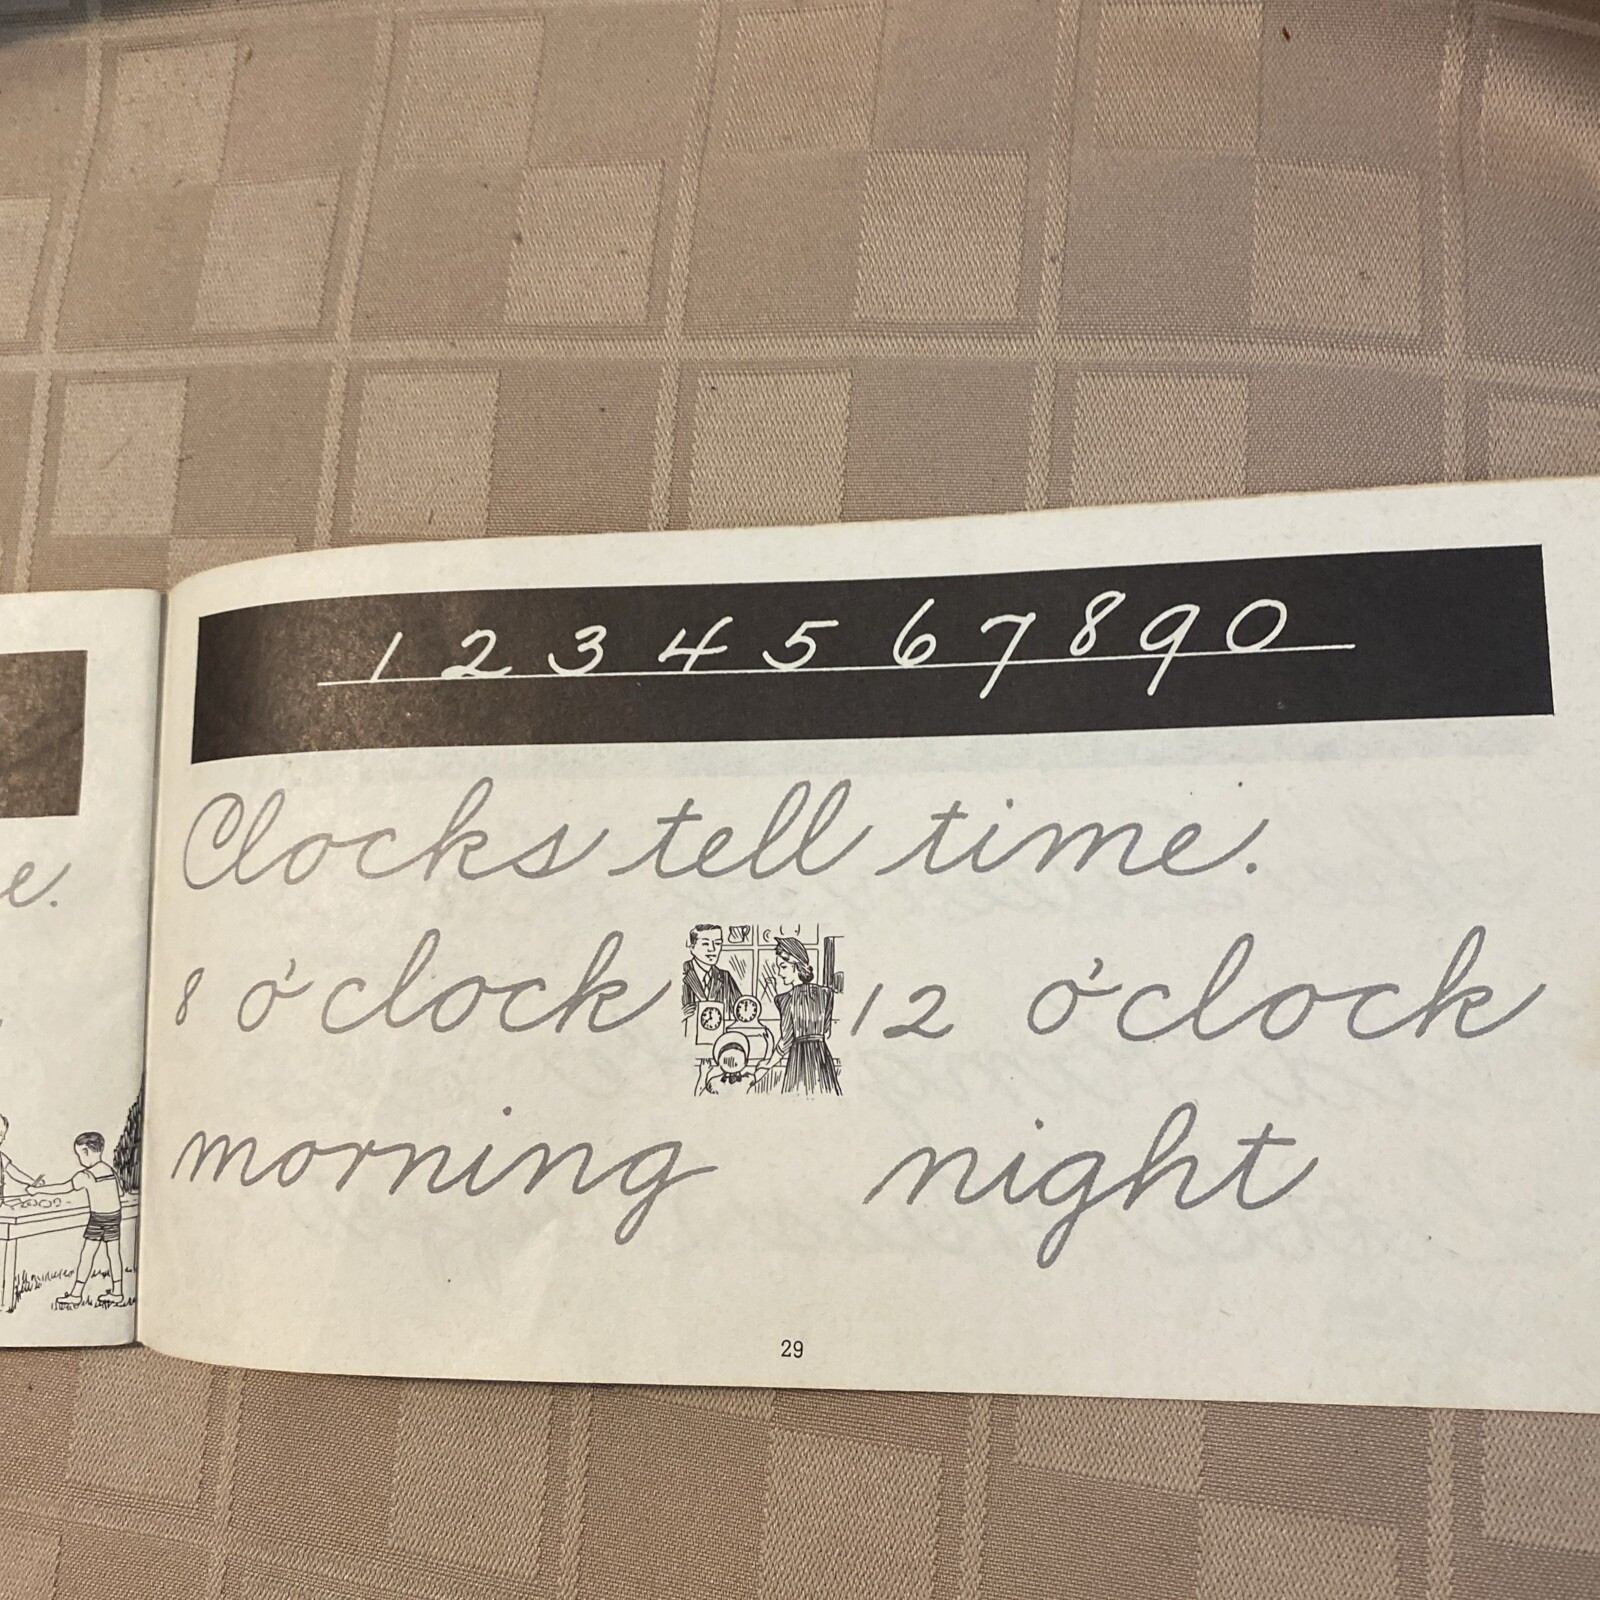 1 2 3 4 5 6 7 8 9 0
Clocks tell time.
8 o'clock 12 o'clock
morning night
29